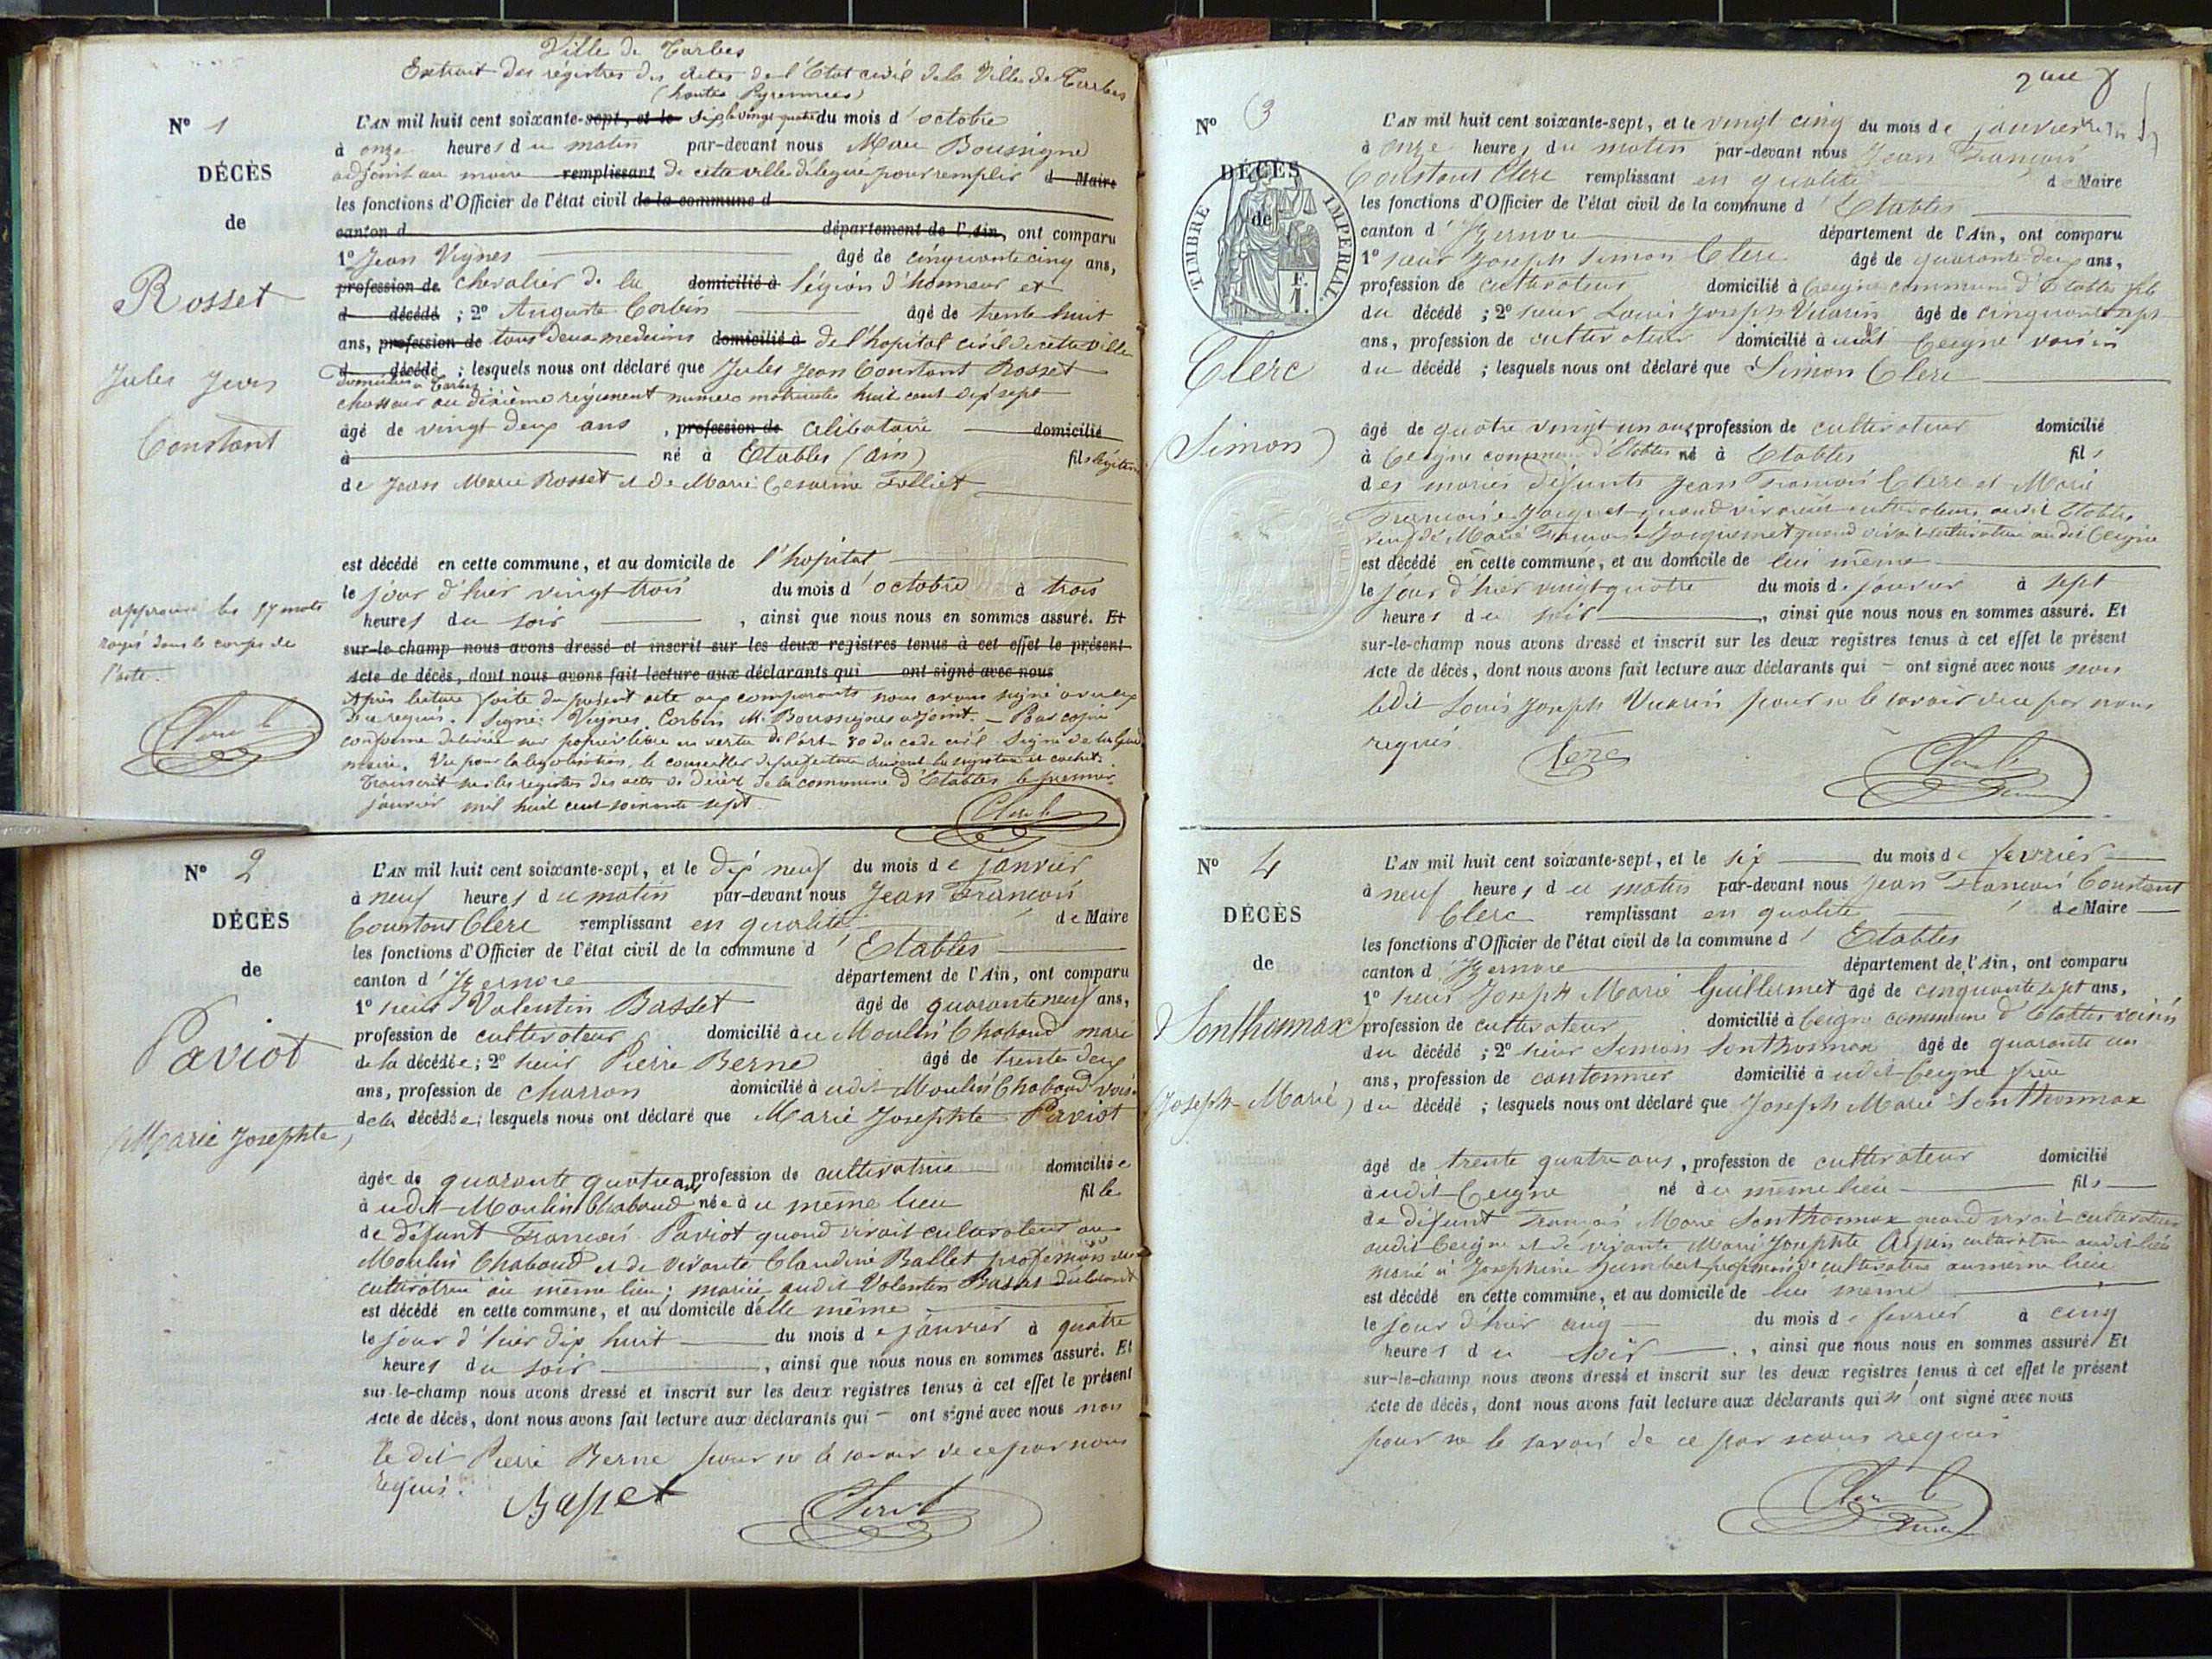 Ville de Tarbes
Extrait des régistres des Actes de l'Etat civil de la Ville de Tarbes
(hautes Pyrennées)
N° 1
L'AN mil huit cent soixante-sept, et le six, le vingt quatre du mois d'octobre
à onze heures du matin par-devant nous Boussigne
DÉCÈS
adjoint au maire remplissant de cette ville délégué pour remplir d Maire
les fonctions d'Officier de l'état civil de la commune d
de
canton d département de l'Ain, ont comparu
1° Jean Vignes âgé de cinquante cinq ans,
Rosset
profession de chevalier de la domicilié à légion d'honneur et
d décédé ; 2° Auguste Corbin âgé de trente huit
ans, profession de tous deux medecins domicilié à de l'hopital civil de cette ville
Jules Jean
d décédé ; lesquels nous ont déclaré que Jules Jean Constant Rosset
domicilies à Tarbes
chasseur au dixième régiment numero matricule huit cent dix sept
Constant
âgé de vingt deux ans , profession de celibataire domicilié
à né à Etables (ain) fils légitime
de Jean Marie Rosset et de Marie Cesarine Folliet
est décédé en cette commune, et au domicile de l'hopital
le jour d'hier vingt trois du mois d'octobre à trois
approuvé les 57 mots
heures du soir , ainsi que nous nous en sommes assuré. Et
rayés dans le corps de
sur-le-champ nous avons dressé et inscrit sur les deux registres tenus à cet effet le présent
l'acte.
Acte de décès, dont nous avons fait lecture aux déclarants qui ont signé avec nous
Après lecture faite du présent acte aux comparants nous avons signé avec eux
de ce requis. Signé: Vignes, Corbin, M. Boussignes adjoint. - Pour copie
conforme délivrée sur papier libre en vertu de l'art. 80 du code civil. Signé
maire. Vu pour la légalisation, le conseiller de préfecture suivent la signature et cachet.
Transcrit sur les registres des actes de décès de la commune d'Etables le premier
janvier mil huit cent soixante sept.
Clerc
N° 2
L'AN mil huit cent soixante-sept, et le dix neuf du mois de janvier
à neuf heures du matin par-devant nous Jean François
DÉCÈS
Constant Clerc remplissant en qualité de Maire
les fonctions d'Officier de l'état civil de la commune d'Etables
de
canton d'Izernore département de l'Ain, ont comparu
1° sieur Valentin Basset âgé de quarante neuf ans,
Paviot
profession de cultivateur domicilié au Moulin Chabaud mari
de la décédée; 2° sieur Pierre Berne âgé de trente deux
ans, profession de charron domicilié à udit Moulin Chabaud voisin
Marie Josephte,
de la décédée; lesquels nous ont déclaré que Marie Josephte Paviot
âgée de quarante quatre ans profession de cultivatrice domiciliée
à udit Moulin Chabaud née à u même lieu fille
de défunt François Paviot quand vivait cultivateur au
Moulin Chabaud et de vivante Claudine Ballet profession de
cultivatrice au même lieu; mariée audit Valentin Basset
est décédé en cette commune, et au domicile d'elle même
le jour d'hier dix huit du mois de janvier à quatre
heures du soir , ainsi que nous nous en sommes assuré. Et
sur-le-champ nous avons dressé et inscrit sur les deux registres tenus à cet effet le présent
Acte de décès, dont nous avons fait lecture aux déclarants qui - ont signé avec nous non
le dit Pierre Berne pour ne le savoir de ce par nous
requis.
Basset
Clerc
N° 3
L'AN mil huit cent soixante-sept, et le vingt cinq du mois de janvier
à onze heures du matin par-devant nous Jean François
DÉCÈS
Constant Clerc remplissant en qualité d Maire
les fonctions d'Officier de l'état civil de la commune d'Etables
de
TIMBRE IMPERIAL
canton d'Izernore département de l'Ain, ont comparu
1° sieur Joseph Simon Clerc âgé de quarante deux ans,
profession de cultivateur domicilié à Ceigne commune d'Etables fils
du décédé ; 2° sieur Louis Joseph Vuarin âgé de cinquante sept
ans, profession de cultivateur domicilié à udit Ceigne voisin
Clerc
du décédé ; lesquels nous ont déclaré que Simon Clerc
Simon
âgé de quatre vingt un ans profession de cultivateur domicilié
à Ceigne commune d'Etables né à Etables fils
des mariés défunts Jean François Clerc et Marie
Françoise Jacquet quand vivaient cultivateurs audit Etables
veuf de Marie Françoise Jacquemet quand vivait cultivatrice audit Ceigne
est décédé en cette commune, et au domicile de lui même
le jour d'hier vingt quatre du mois de janvier à sept
heures du soir , ainsi que nous nous en sommes assuré. Et
sur-le-champ nous avons dressé et inscrit sur les deux registres tenus à cet effet le présent
Acte de décès, dont nous avons fait lecture aux déclarants qui - ont signé avec nous non
ledit Louis Joseph Vuarin pour ne le savoir de ce par nous
requis.
Clerc
Clerc
N° 4
L'AN mil huit cent soixante-sept, et le six du mois de fevrier
à neuf heures du matin par-devant nous Jean François Constant
DÉCÈS
Clerc remplissant en qualité de Maire
les fonctions d'Officier de l'état civil de la commune d'Etables
de
canton d Izernore département de l'Ain, ont comparu
1° sieur Joseph Marie Guillermet âgé de cinquante sept ans,
Sonthonnax
profession de cultivateur domicilié à Ceigne commune d'Etables voisin
du décédé ; 2° sieur Simon Sonthonnax âgé de quarante un
ans, profession de cantonnier domicilié à udit Ceigne frère
Joseph-Marie
du décédé ; lesquels nous ont déclaré que Joseph Marie Sonthonnax
âgé de trente quatre ans, profession de cultivateur domicilié
à udit Ceigne né à u même lieu fils
de défunt François Marie Sonthonnax quand vivait cultivateur
audit Ceigne et de vivante Marie Josephte cultivatrice audit lieu
marié à Josephine Humbert profession de cultivatrice au même lieu
est décédé en cette commune, et au domicile de lui même
le jour d'hier cinq du mois de fevrier à cinq
heures du soir , ainsi que nous nous en sommes assuré. Et
sur-le-champ nous avons dressé et inscrit sur les deux registres tenus à cet effet le présent
Acte de décès, dont nous avons fait lecture aux déclarants qui n'ont signé avec nous
pour ne le savoir de ce par nous requis
Clerc